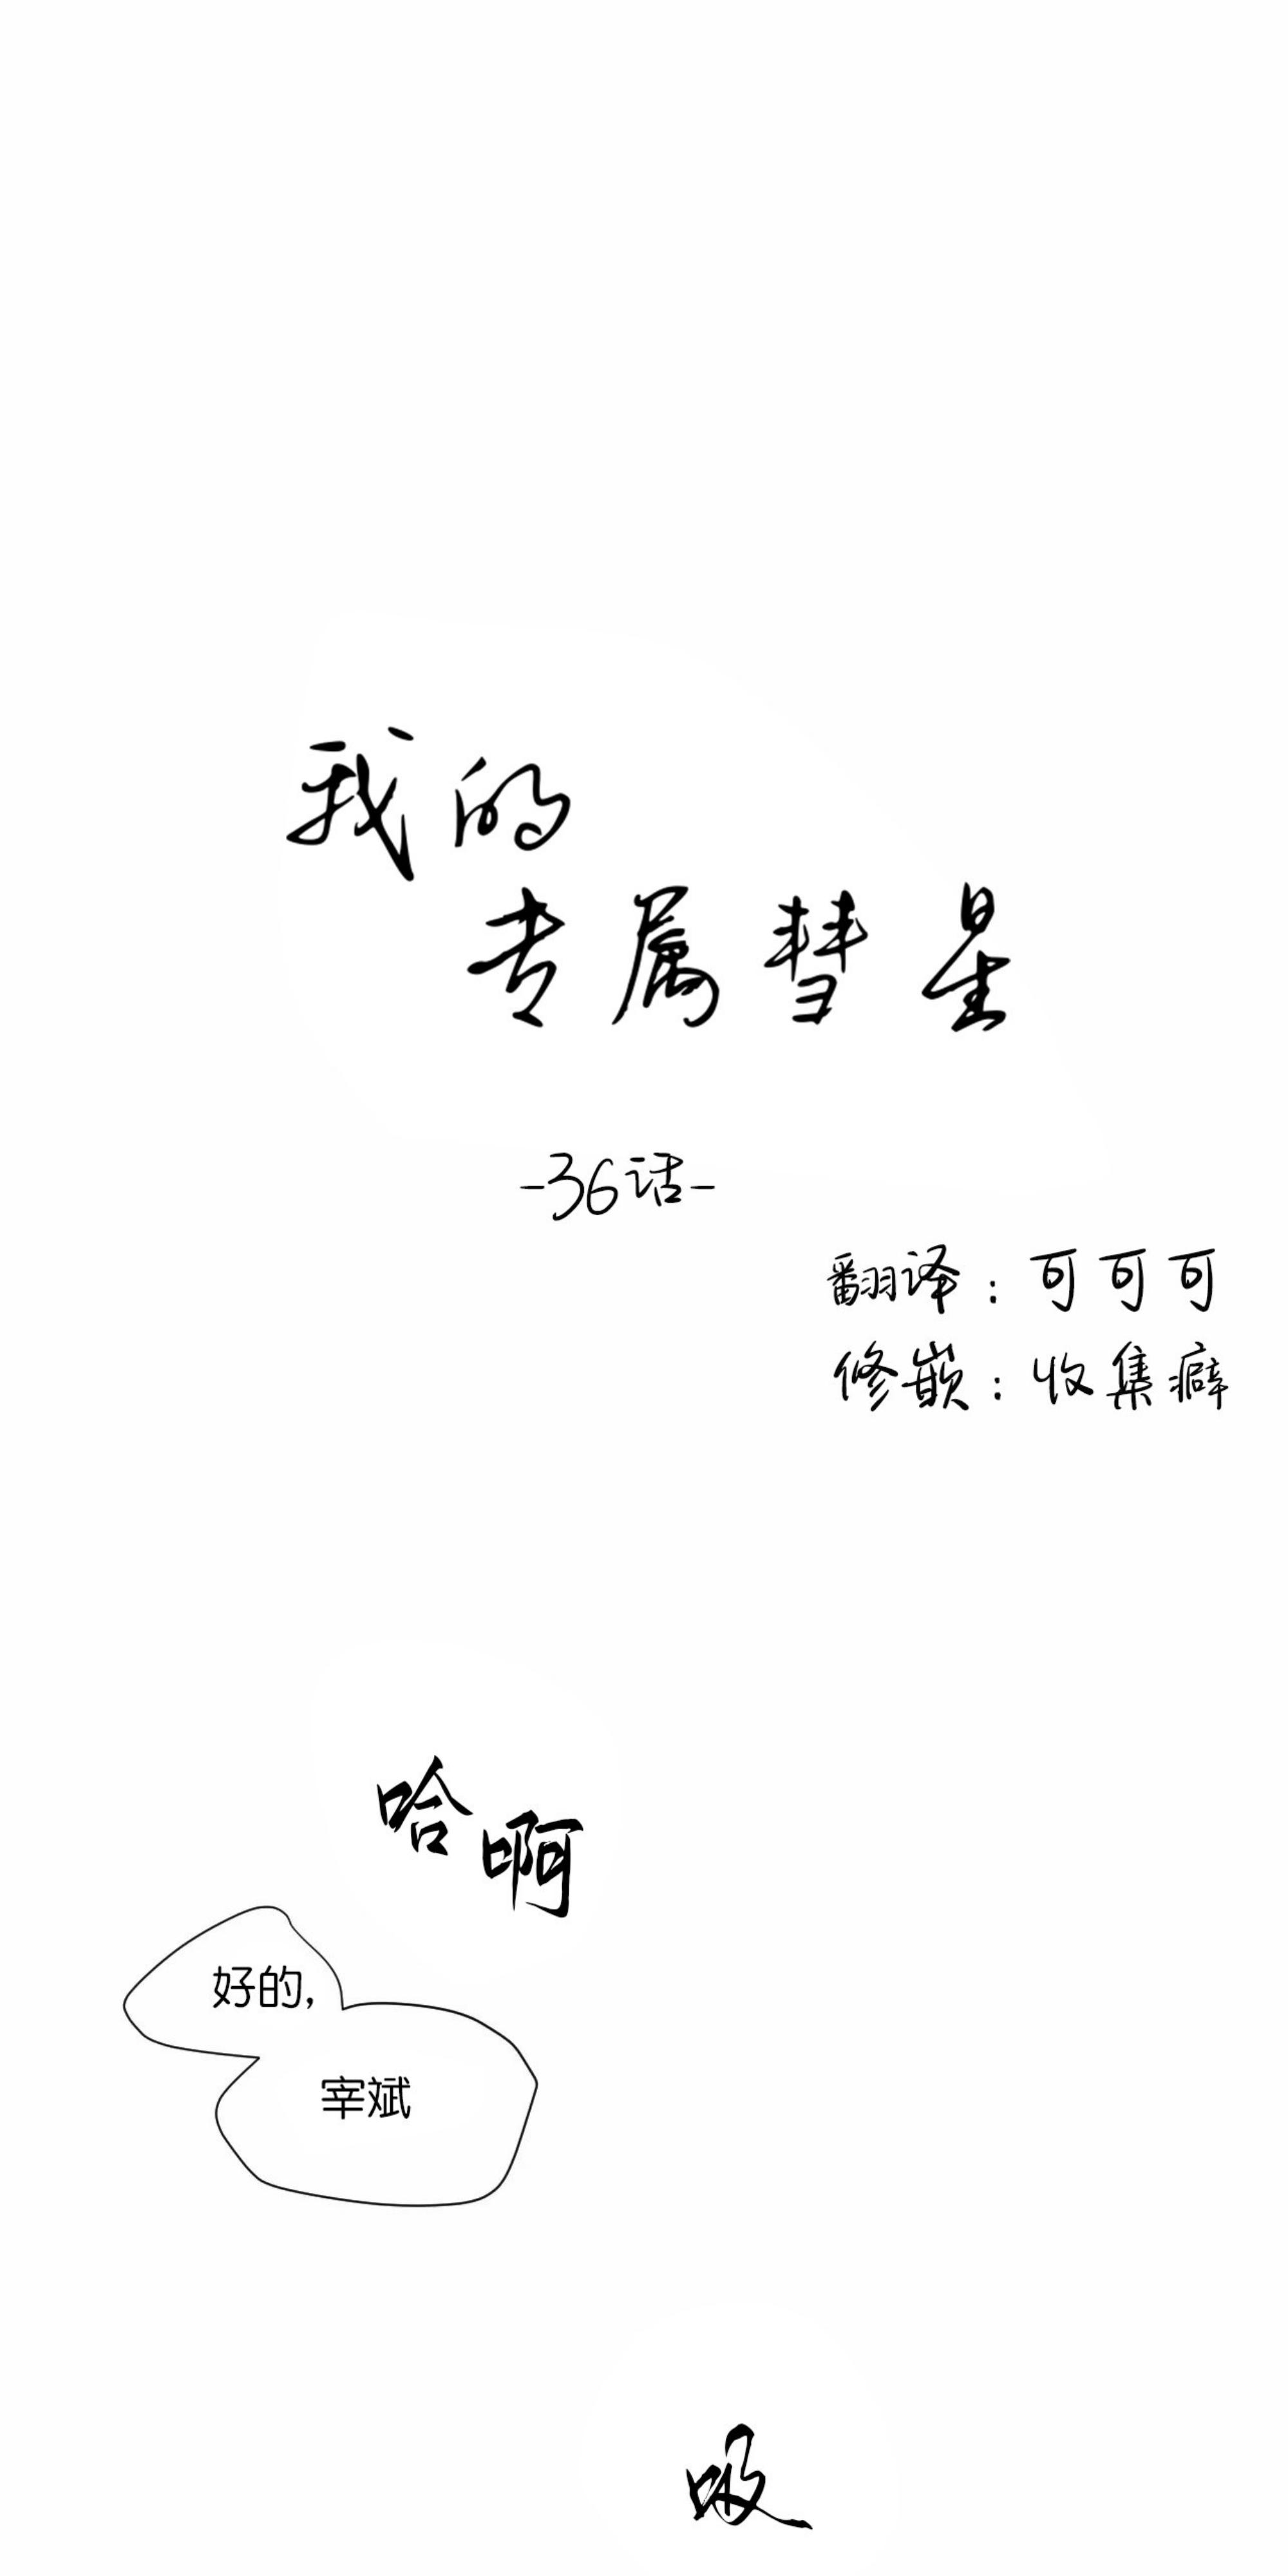 我的
专属彗星
-36话-
翻译：可可可
修嵌：收集癖
哈啊
好的，
宰斌
吸